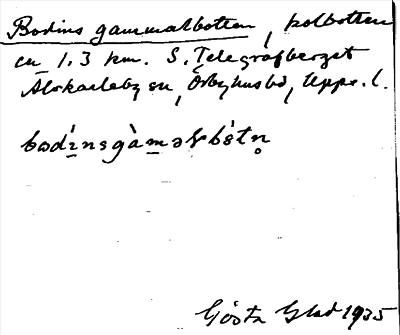 Bodins gammalbotten, kolbotten
ca 1.3 km. S. Telegrafberget
Älvkarleby sn, Örbyhus hd, Upps. l.
bωdínsgàmałbòtn̥
Gösta Glad 1935